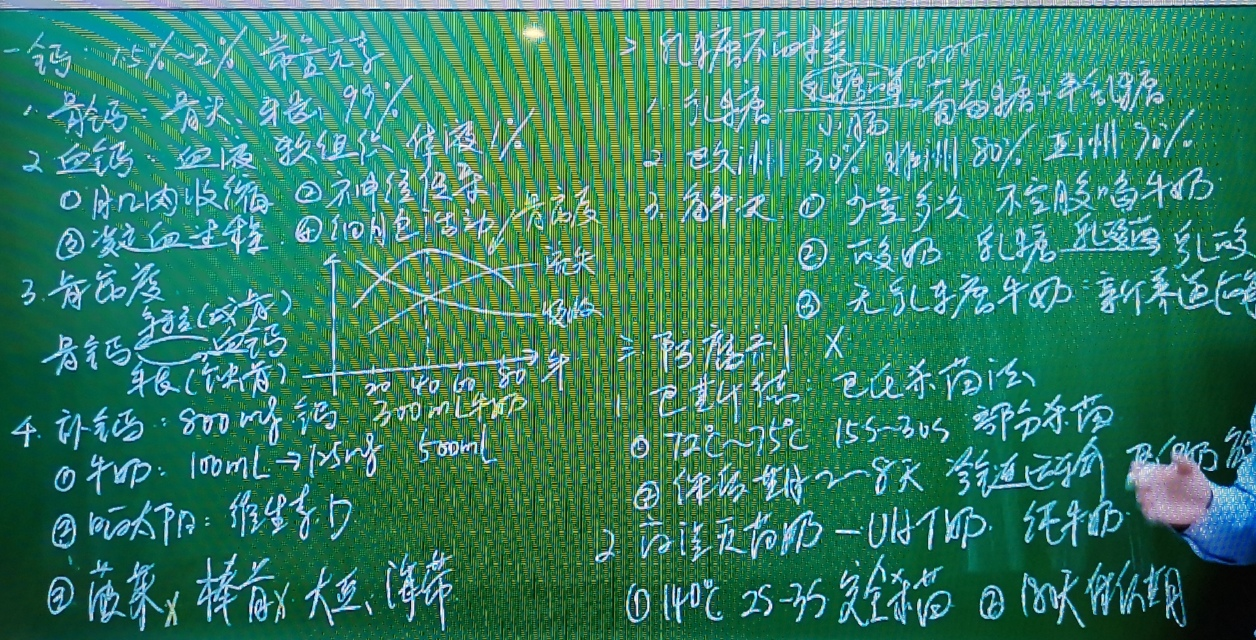 一 钙: 1.5%~2% 常量元素
1. 骨钙: 骨头 牙齿 99%
2. 血钙: 血液 软组织 体液 1%
① 肌肉收缩 ② 神经传导
③ 凝血过程 ④ 细胞活动
3. 骨密度
骨钙 血钙
成骨
破骨
骨密度
流失
吸收
20 40 60 80 年
4. 补钙: 800mg 钙 300mL牛奶
① 牛奶: 100mL→125mg 500mL
② 晒太阳: 维生素D
③ 菠菜x 棒骨x 大豆、海带
二 乳糖不耐受
1. 乳糖 乳糖酶 小肠 葡萄糖+半乳糖
2. 欧洲 30% 非洲 80% 亚洲 90%
3. 解决 ① 少量多次 不空腹喝牛奶
② 酸奶 乳糖 乳酸菌 乳酸
③ 无乳糖牛奶: 新养道
三 防腐剂 X
1. 巴斯德: 巴氏杀菌法
① 72℃~75℃ 15S~30S 部分杀菌
② 保质期 2~8天 冷链运输
2. 灭菌奶 — UHT奶 纯牛奶
① 140℃ 2S-3S 完全杀菌 ② 180天保质期